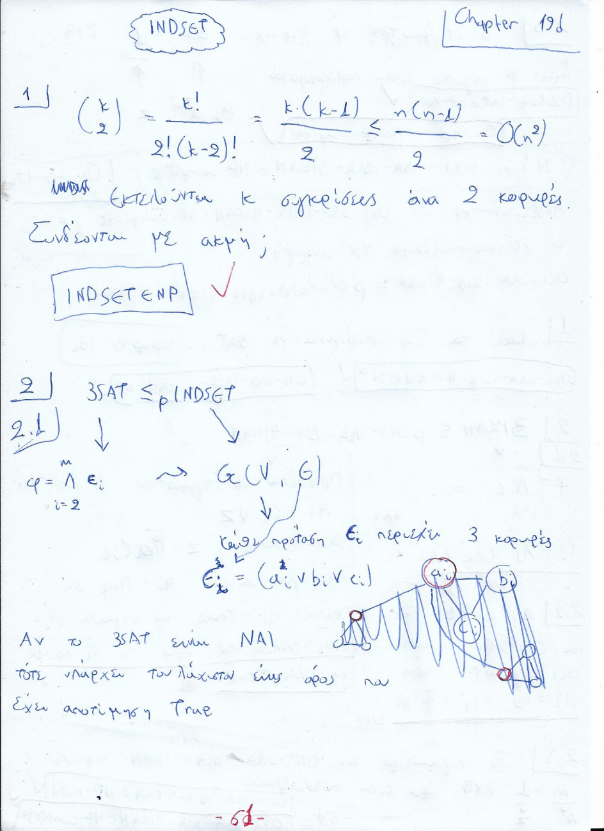 INDSET
Chapter 19d
1
(k 2) = k! / 2!(k-2)! = k·(k-1) / 2 ≤ n(n-1) / 2 = O(n²)
εκτελούνται κ συγκρίσεις ανα 2 κορυφές.
Συνδέονται με ακμή;
INDSET ∈ NP ✓
2 3SAT ≤p INDSET
2.1
φ = m ∧ i=2 ϵi ⇝ G(V, E)
κάθε πρόταση ϵi περιέχει 3 κορυφές
ϵi = (ai ∨ bi ∨ ci)
ai bi
ci
Αν το 3SAT είναι ΝΑΙ
τότε υπάρχει τουλάχιστον ένας όρος που
έχει αποτίμηση True
-61-